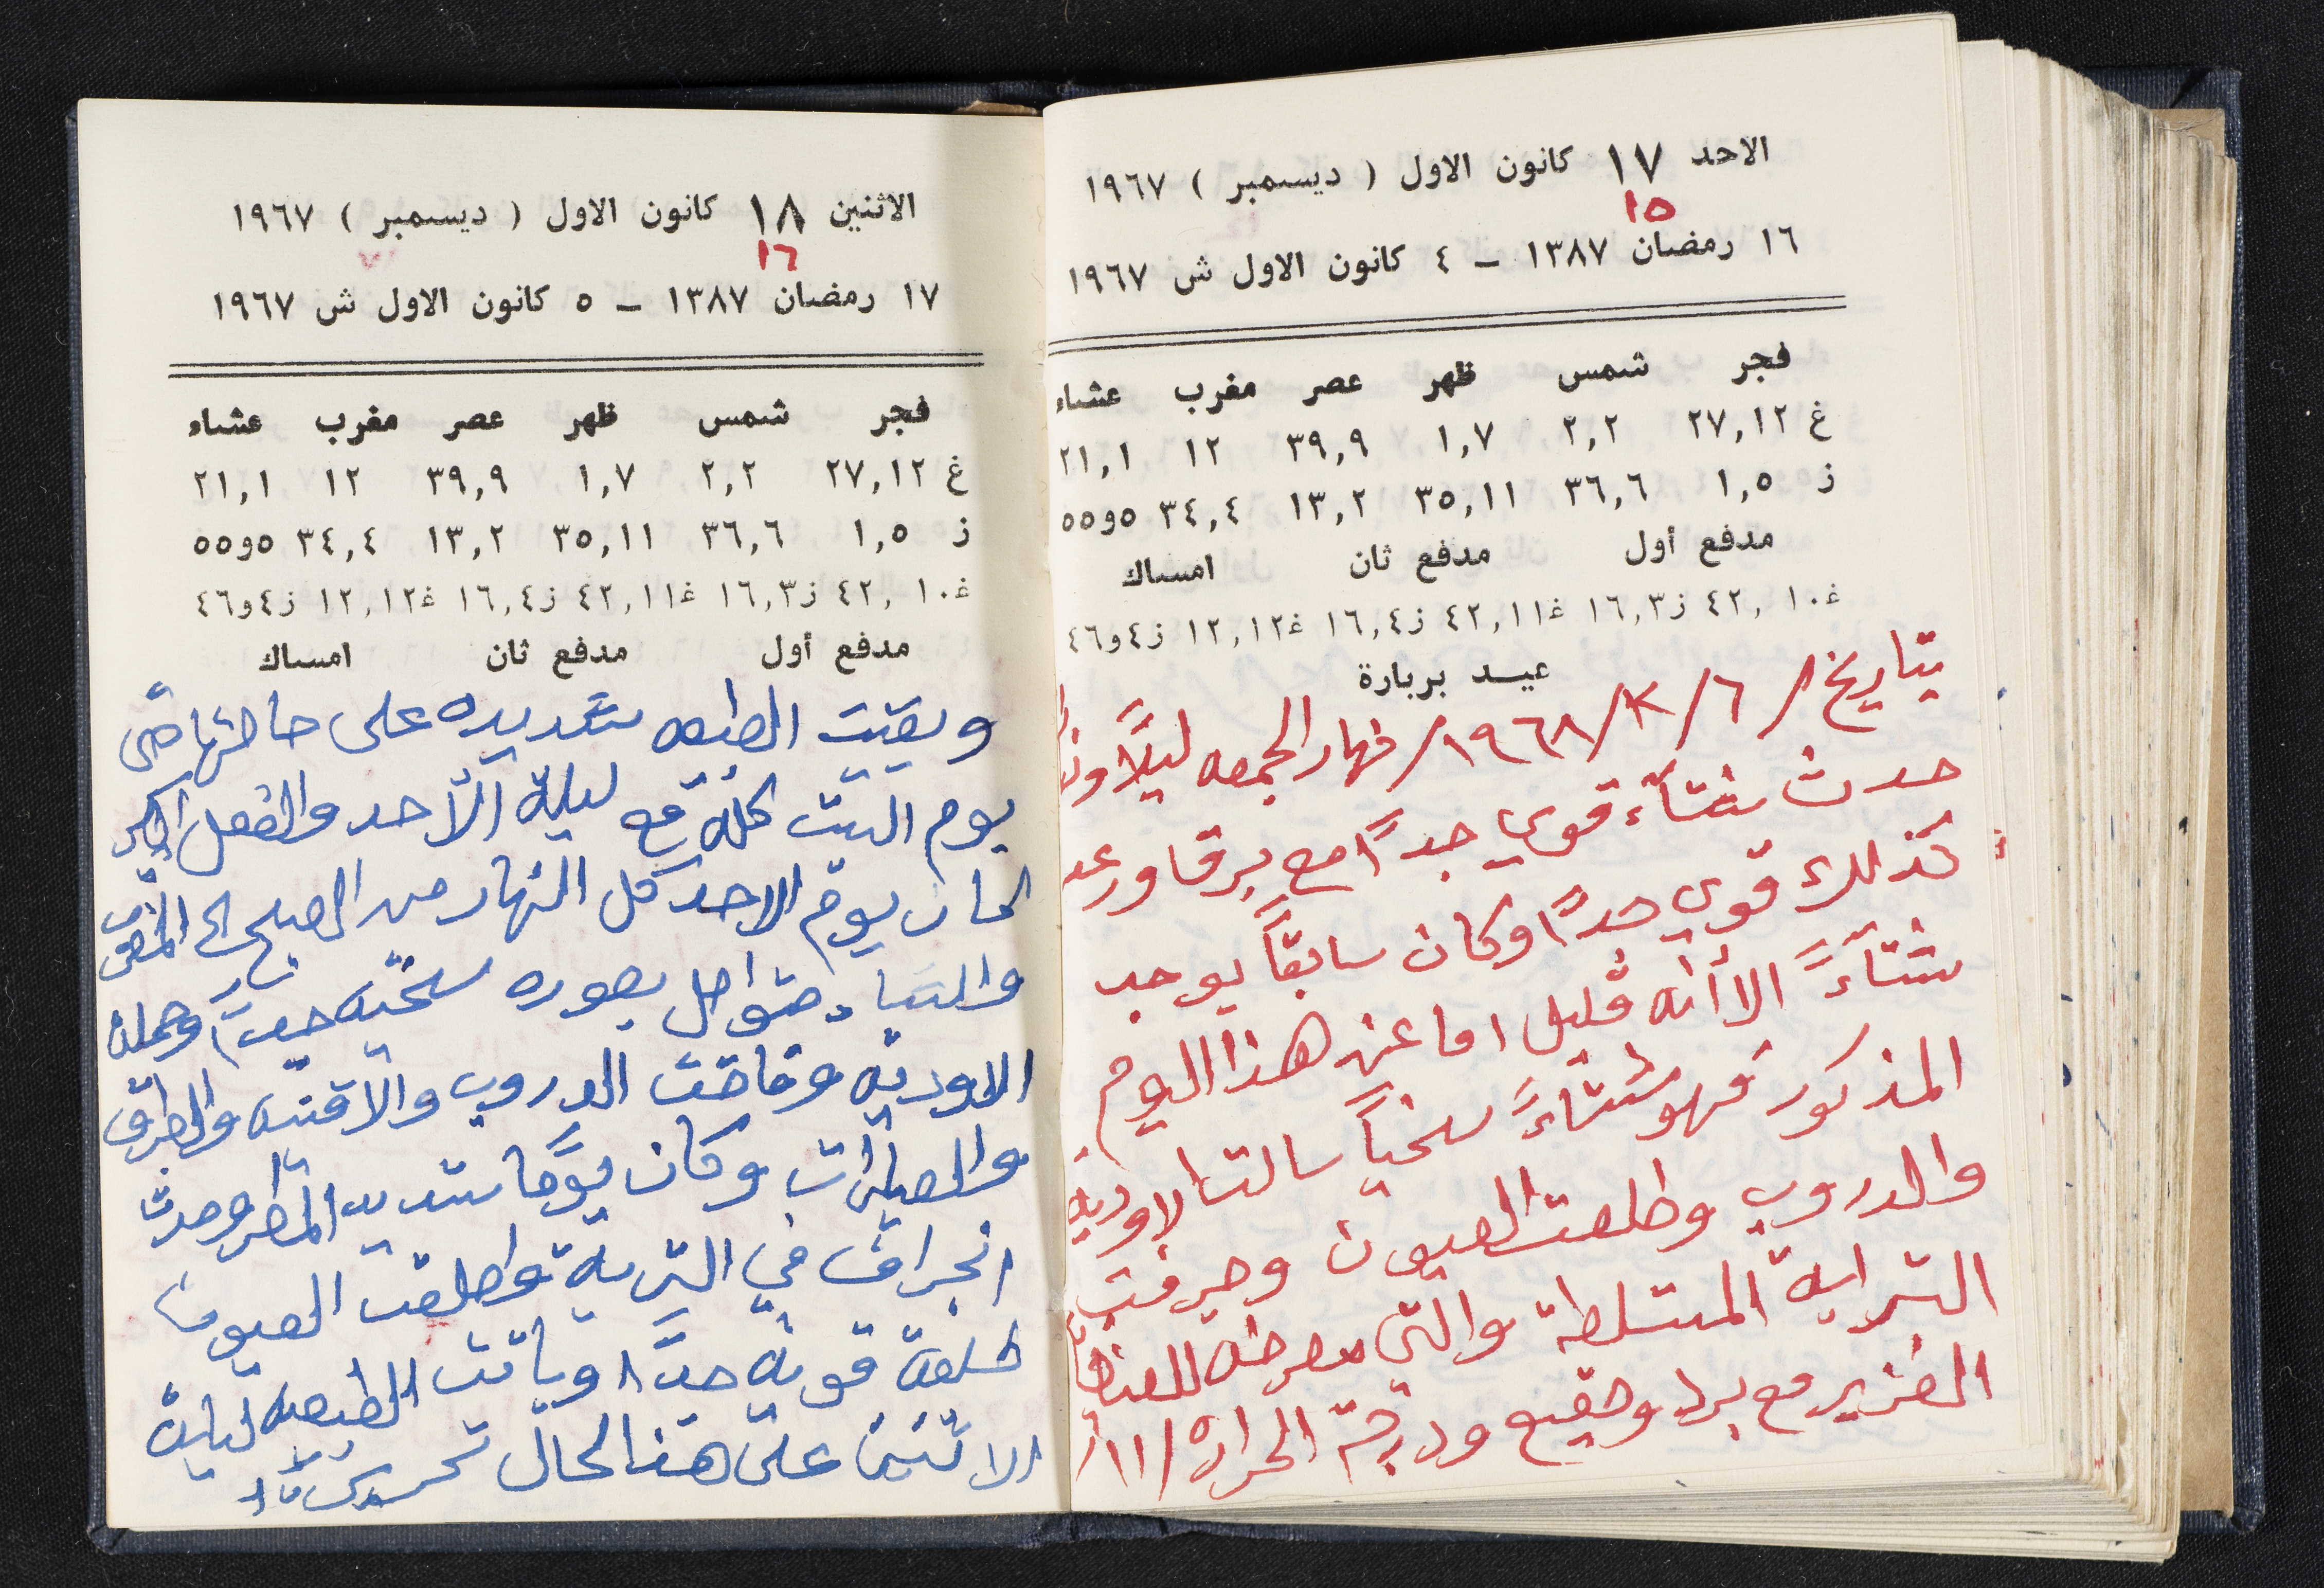 الاحد ١٧ كانون الاول ( ديسمبر ) ١٩٦٧
١٥
١٦ رمضان ١٣٨٧ – ٤ كانون الاول ش ١٩٦٧
فجر شمس ظهر عصر مغرب عشاء
غ ٢٧,١٢ ٢,٢ ١,٧ ٣٩,٩ ١٢ ٢١,١
ز ١,٥ ٣٦,٦ ٣٥,١١ ١٣,٢ ٣٤,٤ ٥و٥٥
مدفع أول مدفع ثان امساك
غ١٠, ٤٢ ز٣,١٦ غ١١,٤٢ ز٤,١٦ غ١٢,١٢ ز٤و٤٦
عيد بربارة
بتاريخ / ٦/ /١٩٦٨/ نهار الجمعه ليلاً
حدث شتآء قوي جداً مع برقا ورعد
كذلك قوي جداً وكان سابقاً يوجد
شتآءً الا أنه قليل اما عن هذا اليوم
المذكور فهو شتاءً سخياً سالت الاوديه
والدروب وطلعت العيون وجرفت
الترابية المتسلطة والتي معرضه
الغزير مع برد وصقيع ودرجة الحراره /١١/
الاثنين ١٨ كانون الاول ( ديسمبر ) ١٩٦٧
١٦
١٧ رمضان ١٣٨٧ – ٥ كانون الاول ش ١٩٦٧
فجر شمس ظهر عصر مغرب عشاء
غ ٢٧,١٢ ٢,٢ ١,٧ ٣٩,٩ ١٢ ٢١,١
ز ١,٥ ٣٦,٦ ٣٥,١١ ١٣,٢ ٣٤,٤ ٥و٥٥
غ١٠, ٤٢ ز٣,١٦ غ١١,٤٢ ز٤,١٦ غ١٢,١٢ ز٤و٤٦
مدفع أول مدفع ثان امساك
وبقيت الطبيعه شديده على حالتها
يوم السبت كله مع ليلة الأحد والفعل
كان يوم الاحد كل النهار من الصبح
والشتاء متواصل بصوره سخيه جداً وحملت
الاوديه وفاضت الدروب والاقنيه والطرق
والعبارات وكان يوماً شديد المطر وحدث
انجراف في التربة وطلعت العيون
طلعة قويه جداً وباتت الطبيعه ليلة
الاثنين على هذا الحال